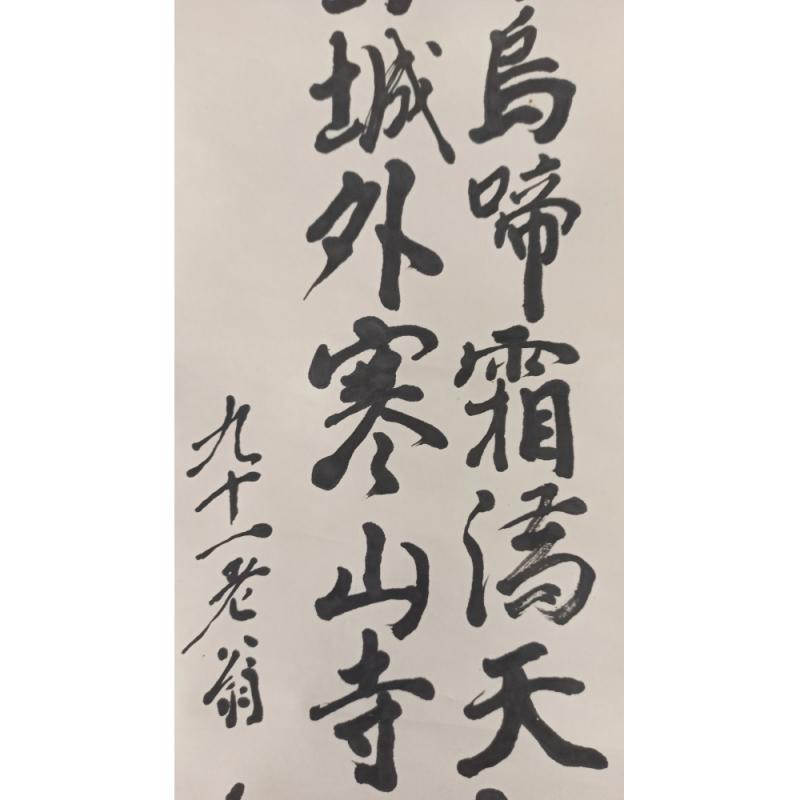 烏啼霜滿天
城外寒山寺
九十一老翁